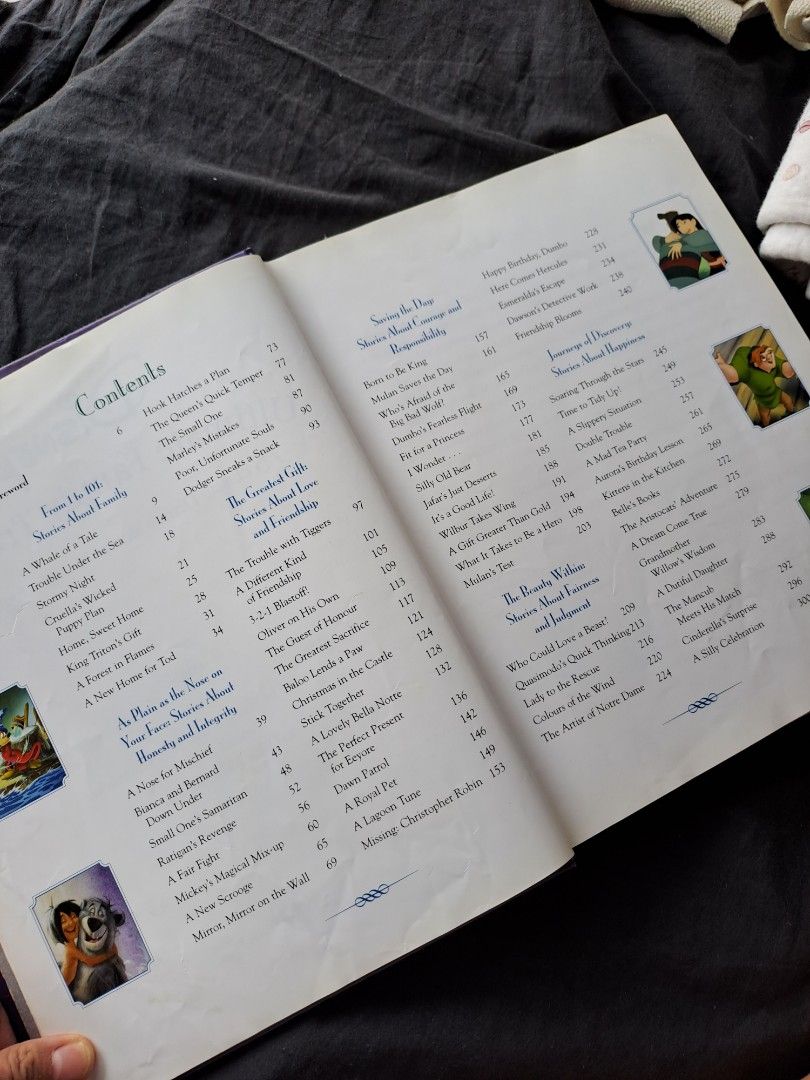 Contents
reword 6
From 1 to 101:
Stories About Family
A Whale of a Tale 9
Trouble Under the Sea 14
Stormy Night 18
Cruella's Wicked
Puppy Plan 21
Home, Sweet Home 25
King Triton's Gift 28
A Forest in Flames 31
A New Home for Tod 34
As Plain as the Nose on
Your Face: Stories About
Honesty and Integrity
A Nose for Mischief 39
Bianca and Bernard
Down Under 43
Small One's Samaritan 48
Ratigan's Revenge 52
A Fair Fight 56
Mickey's Magical Mix-up 60
A New Scrooge 65
Mirror, Mirror on the Wall 69
Hook Hatches a Plan 73
The Queen's Quick Temper 77
The Small One 81
Marley's Mistakes 87
Poor, Unfortunate Souls 90
Dodger Sneaks a Snack 93
The Greatest Gift:
Stories About Love
and Friendship
The Trouble with Tiggers 97
A Different Kind
of Friendship 101
3-2-1 Blastoff! 105
Oliver on His Own 109
The Guest of Honour 113
The Greatest Sacrifice 117
Baloo Lends a Paw 121
Christmas in the Castle 124
Stick Together 128
A Lovely Bella Notte 132
The Perfect Present
for Eeyore 136
Dawn Patrol 142
A Royal Pet 146
A Lagoon Tune 149
Missing: Christopher Robin 153
Saving the Day:
Stories About Courage and
Responsibility
Born to Be King 157
Mulan Saves the Day 161
Who's Afraid of the
Big Bad Wolf? 165
Dumbo's Fearless Flight 169
Fit for a Princess 173
I Wonder . . . 177
Silly Old Bear 181
Jafar's Just Desserts 185
It's a Good Life! 188
Wilbur Takes Wing 191
A Gift Greater Than Gold 194
What It Takes to Be a Hero 198
Mulan's Test 203
The Beauty Within:
Stories About Fairness
and Judgment
Who Could Love a Beast? 209
Quasimodo's Quick Thinking 213
Lady to the Rescue 216
Colours of the Wind 220
The Artist of Notre Dame 224
Happy Birthday, Dumbo 228
Here Comes Hercules 231
Esmeralda's Escape 234
Dawson's Detective Work 238
Friendship Blooms 240
Journeys of Discovery:
Stories About Happiness
Soaring Through the Stars 245
Time to Tidy Up! 249
A Slippery Situation 253
Double Trouble 257
A Mad Tea Party 261
Aurora's Birthday Lesson 265
Kittens in the Kitchen 269
Belle's Books 272
The Aristocats' Adventure 275
A Dream Come True 279
Grandmother
Willow's Wisdom 283
A Dutiful Daughter 288
The Mancub
Meets His Match 292
Cinderella's Surprise 296
A Silly Celebration 300